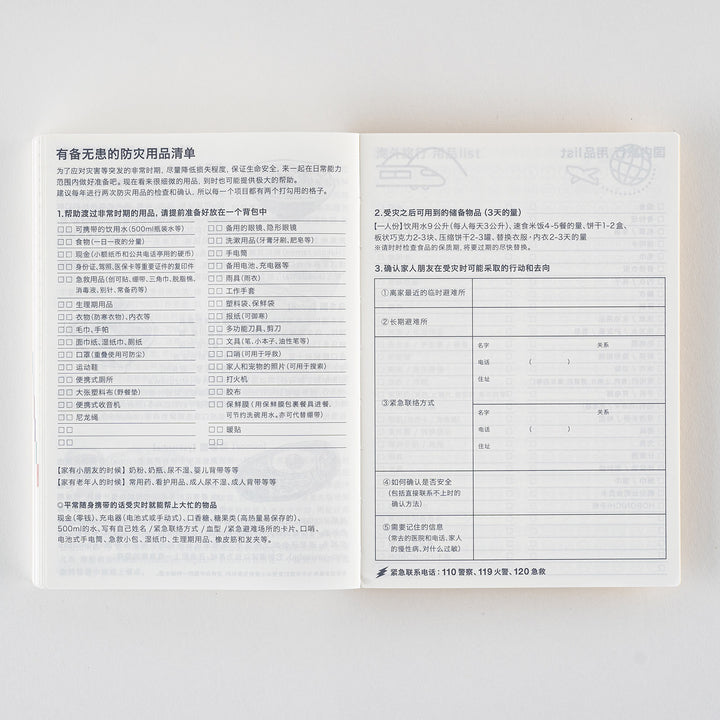 有备无患的防灾用品清单
为了应对灾害等突发的非常时期，尽量降低损失程度，保证生命安全，来一起在日常能力
范围内做好准备吧。现在看来很细微的用品，到时也可能提供极大的帮助。
建议每年进行两次防灾用品的检查和确认，所以每一个项目都有两个打勾用的格子。
1.帮助渡过非常时期的用品，请提前准备好放在一个背包中
□□ 可携带的饮用水(500ml瓶装水等)
□□ 食物(一日一夜的分量)
□□ 现金(小额纸币和公共电话亭用的硬币)
□□ 身份证、驾照、医保卡等重要证件的复印件
□□ 急救用品(创可贴、绷带、三角巾、脱脂棉、
消毒液、别针、常备药等)
□□ 生理期用品
□□ 衣物(防寒衣物)、内衣等
□□ 毛巾、手帕
□□ 面巾纸、湿纸巾、厕纸
□□ 口罩(重叠使用可防尘)
□□ 运动鞋
□□ 便携式厕所
□□ 大张塑料布(野餐垫)
□□ 便携式收音机
□□ 尼龙绳
□□
□□
□□ 备用的眼镜、隐形眼镜
□□ 洗漱用品(牙膏牙刷、肥皂等)
□□ 手电筒
□□ 备用电池、充电器等
□□ 雨具(雨衣)
□□ 工作手套
□□ 塑料袋、保鲜袋
□□ 报纸(可御寒)
□□ 多功能刀具、剪刀
□□ 文具(笔、小本子、油性笔等)
□□ 口哨(可用于呼救)
□□ 家人和宠物的照片(可用于搜索)
□□ 打火机
□□ 胶布
□□ 保鲜膜(用保鲜膜包裹餐具进餐，
可节约洗碗用水。亦可代替绷带)
□□ 暖贴
□□
【家有小朋友的时候】奶粉、奶瓶、尿不湿、婴儿背带等等
【家有老年人的时候】常用药、看护用品、成人尿不湿、成人背带等等
◎平常随身携带的话受灾时就能帮上大忙的物品
现金(零钱)、充电器(电池式或手动式)、口香糖、糖果类(高热量易保存的)、
500ml的水、写有自己姓名/紧急联络方式/血型/紧急避难场所的卡片、口哨、
电池式手电筒、急救小包、湿纸巾、生理期用品、橡皮筋和发夹等。
2.受灾之后可用到的储备物品 (3天的量)
【一人份】饮用水9公升(每人每天3公升)、速食米饭4-5餐的量、饼干1-2盒、
板状巧克力2-3块、压缩饼干2-3罐、替换衣服·内衣2-3天的量
※请时时检查食品的保质期，将要过期的尽快替换。
3.确认家人朋友在受灾时可能采取的行动和去向
①离家最近的临时避难所
②长期避难所
③紧急联络方式
名字 关系
电话 ( )
住址
名字 关系
电话 ( )
住址
④如何确认是否安全
(包括直接联系不上时的
确认方法)
⑤需要记住的信息
(常去的医院和电话、家人
的慢性病、对什么过敏)
紧急联系电话：110 警察、119 火警、120 急救